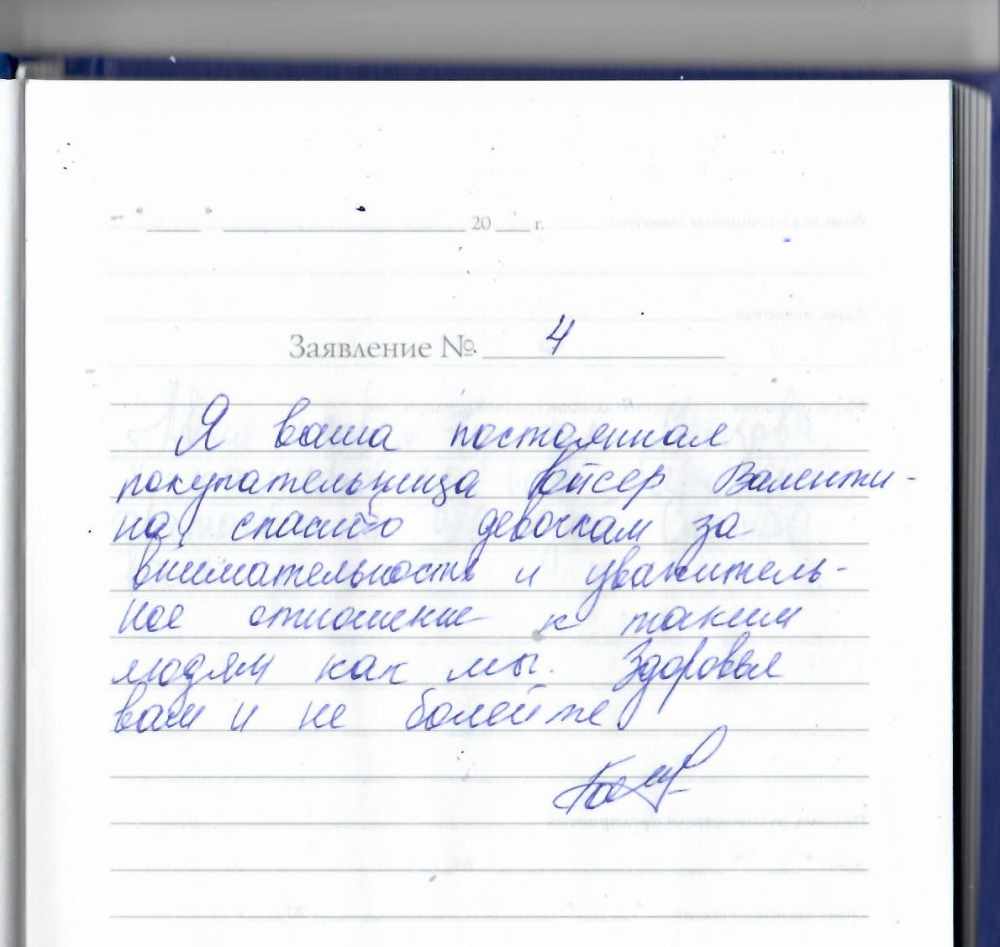 " " 20 г.
Заявление № 4
Я ваша постоянная
покупательница Валенти-
на, спасибо девочкам за
внимательность и уважитель-
ное отношение к таким
людям как мы. Здоровья
вам и не болейте